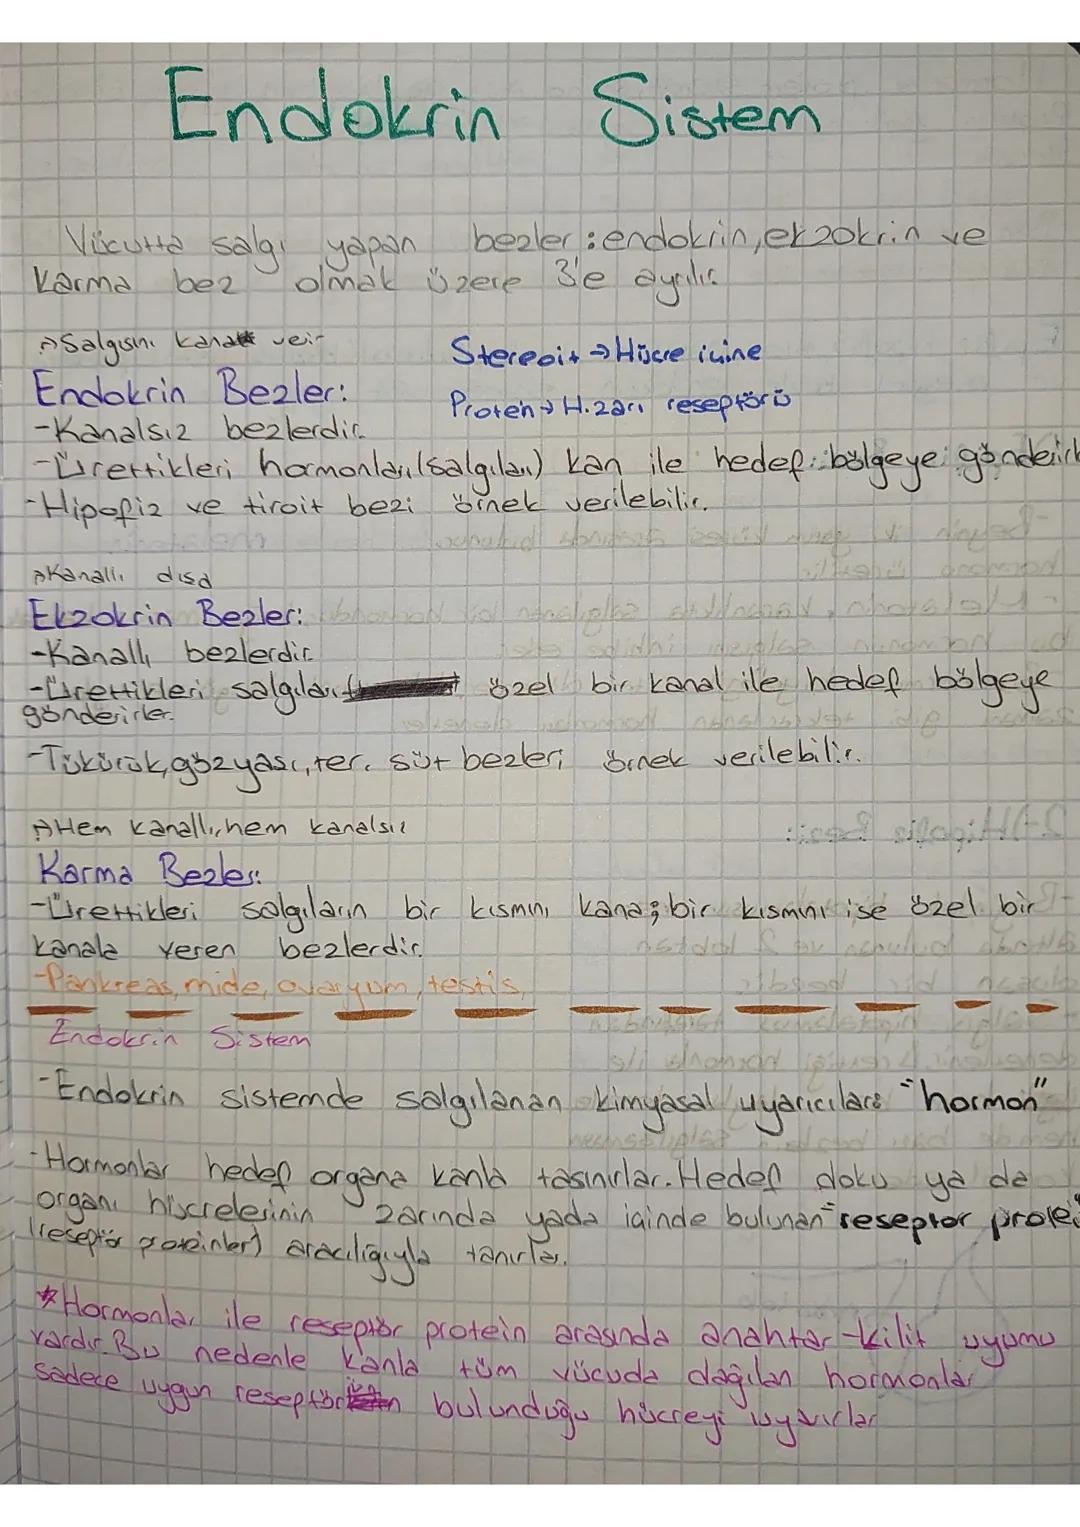 Endokrin Sistem
Vücutta salgı yapan bezler: endokrin, ekzokrin ve
Karma bez olmak üzere 3'e ayrılır.
Salgısını kana verir
Stereoit → Hücre içine
Endokrin Bezler:
Protein → H.zarı reseptörü
-Kanalsız bezlerdir.
-Ürettikleri hormonları (salgıları) kan ile hedef bölgeye gönderirler
-Hipofiz ve tiroit bezi örnek verilebilir.
Kanallı dışa
Ekzokrin Bezler:
-Kanallı bezlerdir.
-Ürettikleri salgıları özel bir kanal ile hedef bölgeye
gönderirler.
-Tükürük, gözyaşı, ter, süt bezleri örnek verilebilir.
Hem kanallı, hem kanalsız
Karma Bezler:
-Ürettikleri salgıların bir kısmını kana; bir kısmını ise özel bir
kanala veren bezlerdir.
-Pankreas, mide, ovaryum, testis,
Endokrin Sistem
-Endokrin sistemde salgılanan kimyasal uyarıcılara "hormon"
-Hormonlar hedef organa kanla taşınırlar. Hedef doku ya da
organı hücrelerinin zarında yada içinde bulunan "reseptor
(reseptör proteinleri) aracılığıyla tanırlar.
*Hormonlar ile reseptör protein arasında anahtar-kilit uyumu
vardır. Bu nedenle kanla tüm vücuda dağılan hormonlar
sadece uygun reseptörün bulunduğu hücreyi uyarırlar